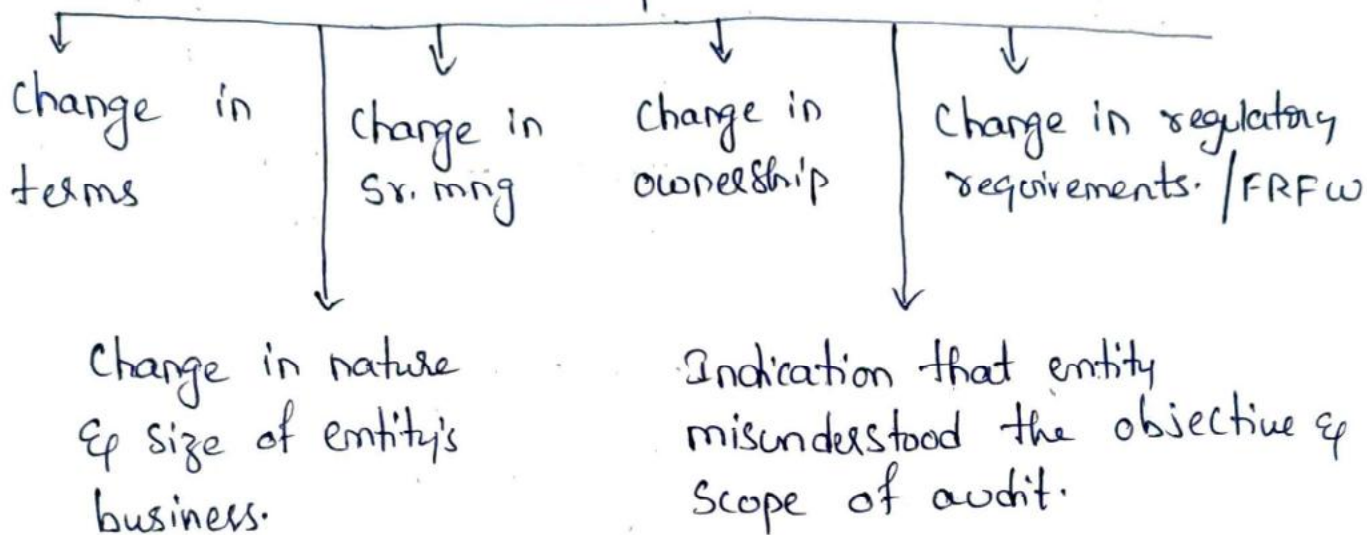 Change in
terms
Change in
Sr. mng
Change in
ownership
Change in regulatory
requirements. /FRFW
Change in nature
& size of entity's
business.
Indication that entity
misunderstood the objective &
Scope of audit.